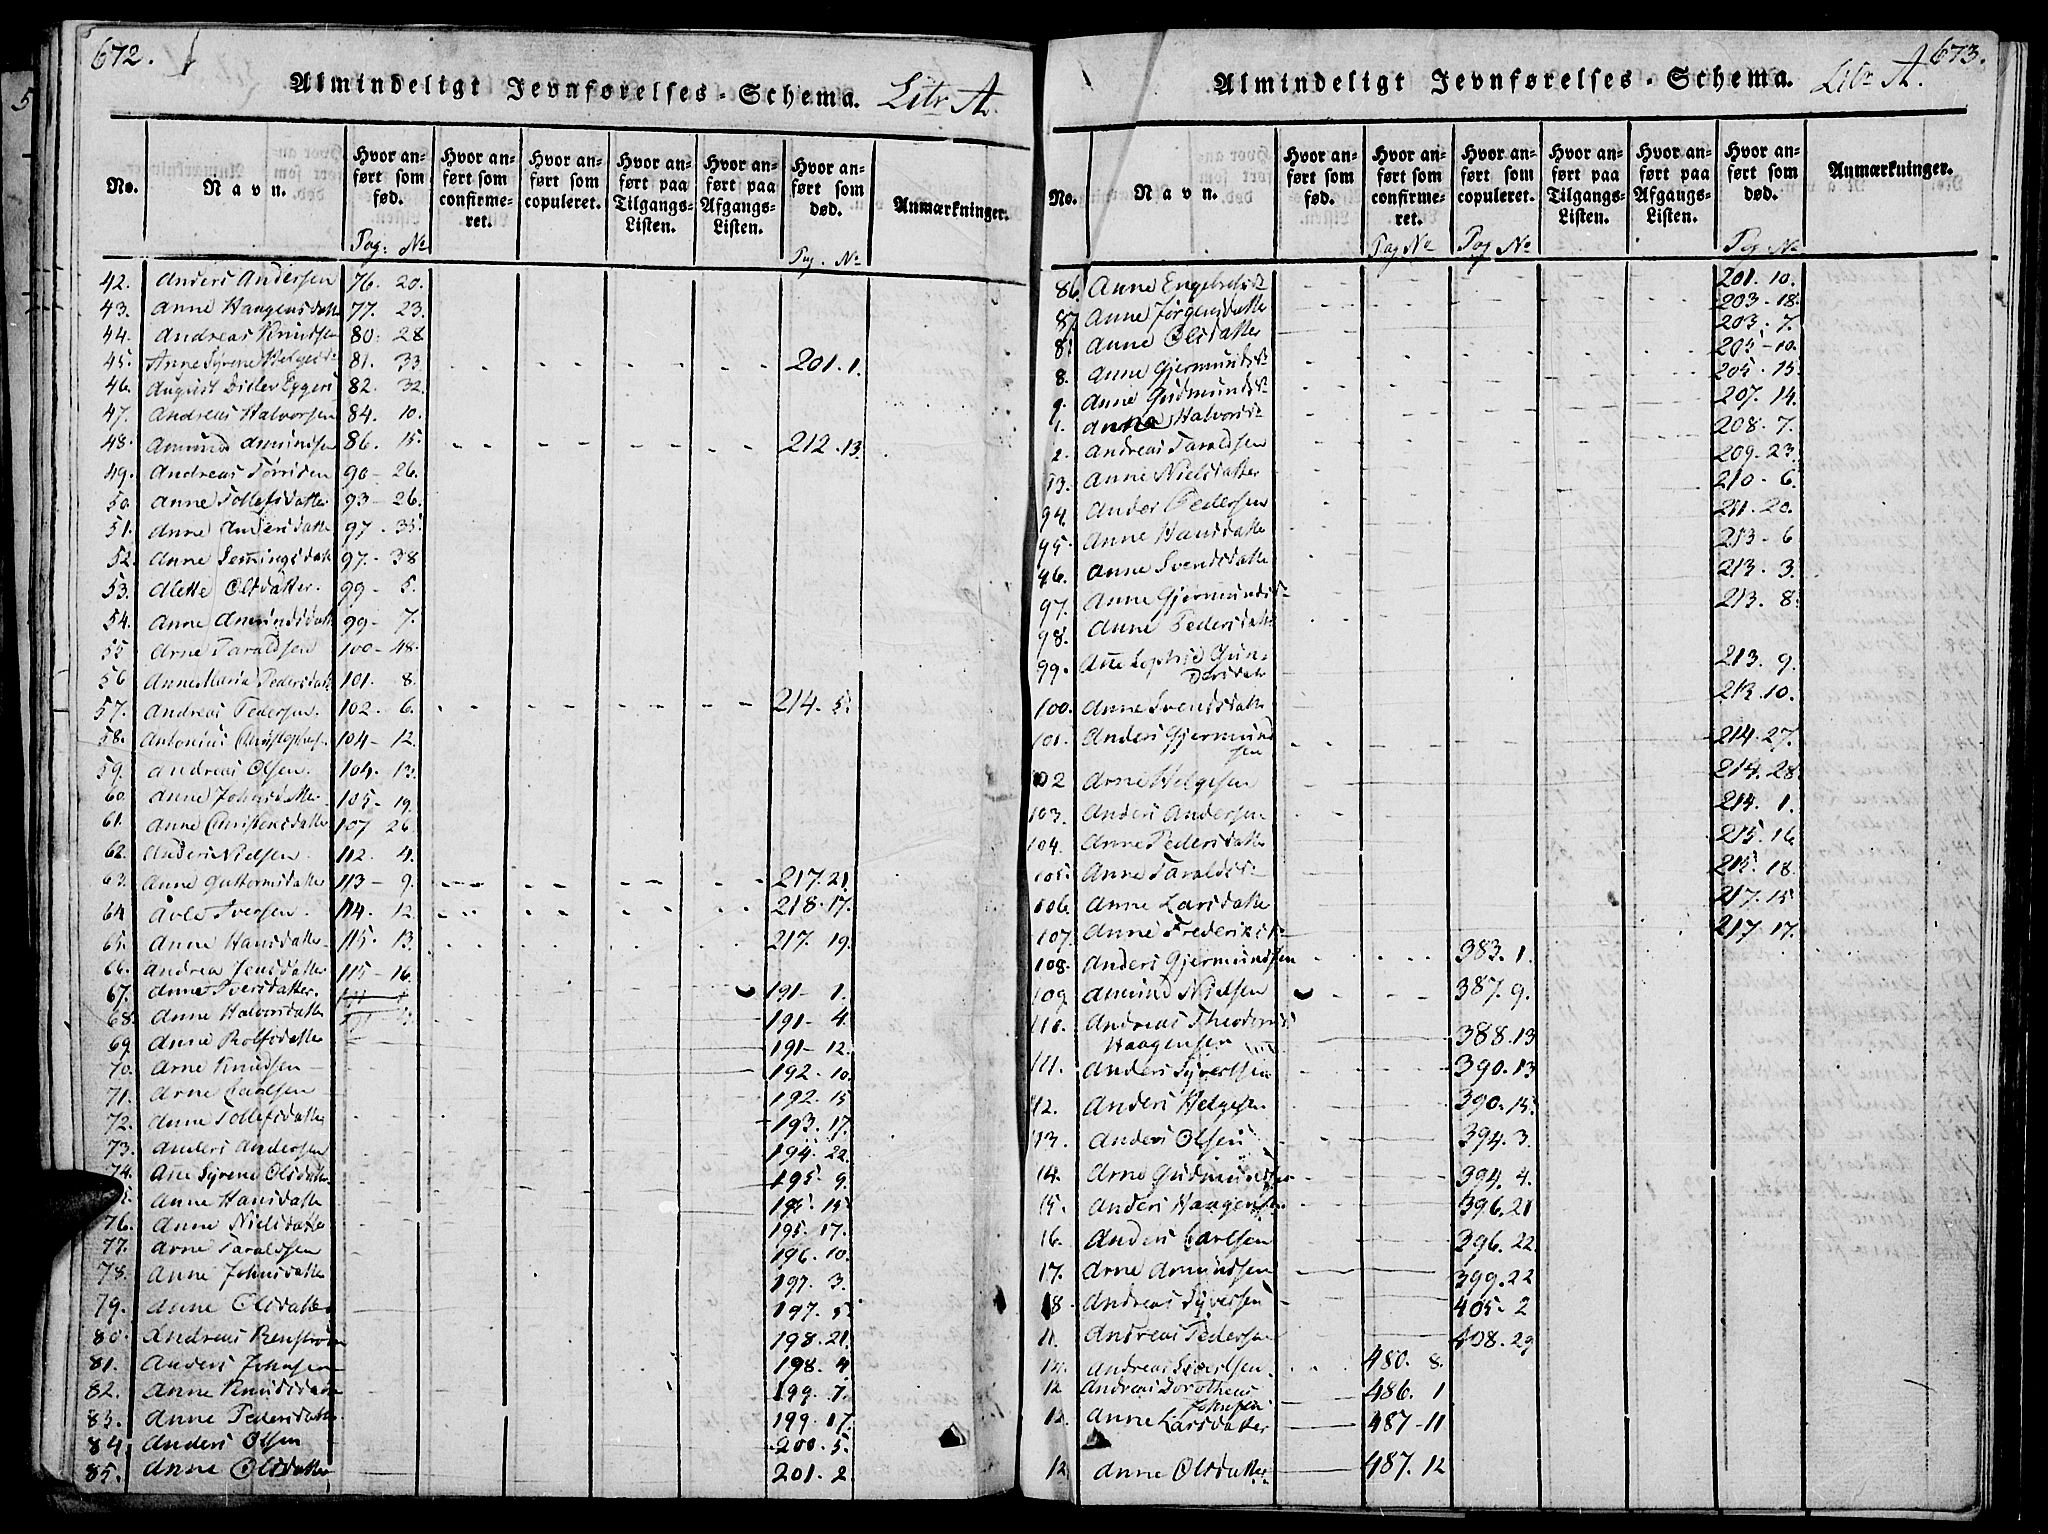 672.
Almindeligt Jevnførelses-Schema. Litr A.
No.
Navn.
Hvor anført som fød.
Hvor anført som confirmeret.
Hvor anført som copuleret.
Hvor anført paa Tilgangs-Listen.
Hvor anført paa Afgangs-Listen.
Hvor anført som død.
Anmærkninger.
Pag. No Pag. No
42. Anders Andersen 76. 20.
43. Anne Haagensdatter 77. 23.
44. Andreas Knudsen 80. 28
45. Anne Syrene Helgesd 81. 33 201. 1.
46. August Ditlev Eggers 82. 32.
47. Andreas Halvorsen 84. 10.
48. Amund Amundsen 86. 15. 212. 13.
49. Andreas 90- 26.
50. Anne Tollefsdatter 93- 26.
51. Anne Andersdatter 97. 35.
52. Anne 97- 38
53. Alette Olsdatter. 99- 5.
54. Anne Amundsdatt 99- 7.
55 Arne Taraldsen 100- 48.
56 Anne Maria Pedersdatt 101. 8.
57. Andreas Pedersen. 102- 6. 214. 5.
58. Antonius Christophers. 104- 12.
59. Andreas Olsen. 104. 13.
60. Anne Johnsdatter 105- 19.
61. Anne Christensdatter 107 26.
62. Anders Nielsen. 112. 4.
63. Anne Guttormsdatter 113- 9. 217. 21.
64 Avle Iversen. 114. 12. 218. 17.
65. Anne Hansdatter 115. 13. 217. 19.
66. Andrea Jensdatter 115- 16.
67. Anne Iversdatter. 191- 1.
68. Anne Halvorsdatter 191- 4.
69. Anne Rolfsdatter 191- 12.
70. Arne Knudsen 192. 10.
71. Arne Carlsen 192. 15
72. Anne Tollefsdatter 193. 17.
73. Anders Andersen 194. 22.
74. Ane Syrene Olsdatter 195. 9.
Anne Hansdatter 195. 15.
76. Anne Nielsdatter 195. 17.
77. Arne Taraldsen 196. 10.
78. Anne Johnsdatter 197. 3.
79. Anne Olsdatter 197. 5.
80. Andreas Benstrøm 198. 21.
81. Anders Johnsen 198. 4
82. Anne Knudsdatter 199. 7.
83. Anne Pedersdatter 199. 17.
84. Anders Olsen 200. 5.
85. Anne Olsdatter 201. 2.
673.
Almindeligt Jevnførelses-Schema. Litr A.
No.
Navn.
Hvor anført som fød.
Hvor anført som confirmeret.
Hvor anført som copuleret.
Hvor anført paa Tilgangs-Listen.
Hvor anført paa Afgangs-Listen.
Hvor anført som død.
Anmærkninger.
Pag No Pag No Pag. No
86 Anne Engebretsd 201. 10.
87 Anne Jørgensdatter 203. 18.
8. Anne Olsdatter 203. 7.
8. Anne Gjermundsd 205- 10.
9. Anne Gudmundsd 205. 15.
1. Anna Halvorsd 207. 14.
2. Andreas Taraldsen 208. 7.
13. Anne Nielsdatter 209. 23.
94. Anders Pedersen 210- 6.
95. Anne Hansdatter 211. 20.
96. Anne Svendsdatter 213- 6
97. Anne Gjermundsd 213. 3.
98. Anne Pedersdatter 213. 8.
99. Ane Sophie Gundersdatter 213. 9.
100. Anne Svendsdatter 213. 10.
101. Anders Gjermundsen 214. 27.
102 Arne Helgesen 214. 28.
103. Anders Andersen 214. 1.
104. Anne Pedersdatter 215. 16.
105. Anne Taraldsd 215. 18.
106. Anne Larsdatter 217. 15
107. Anne Frederiksd 217. 17.
108. Anders Gjermundsen 383. 1.
109. Amund Nielsen 387. 9.
110. Andreas Haagensen 388. 13
111. Anders Syvertsen 390. 13
12. Anders Helgesen 390. 15.
13. Anders Olsen 394. 3.
14. Arne Gudmundsen 394. 4.
15. Anders Haagensen 396. 21
16. Anders Carlsen 396. 22.
17. Arne Amundsen 399. 22
18. Andreas Syversen 405- 2
11. Andreas Pedersen 408. 29
12. Andreas 480. 8.
12 Andreas Dorotheus Johnsen 486. 1
12. Anne Larsdatter 487-11
12. Anne Olsdatter 487. 12